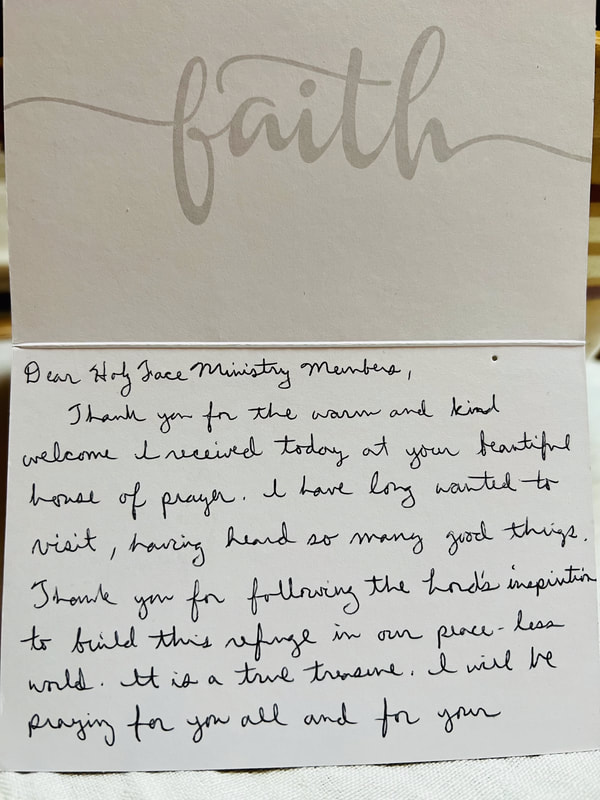 faith
Dear Holy Face Ministry Members,
Thank you for the warm and kind
welcome I received today at your beautiful
house of prayer. I have long wanted to
visit, having heard so many good things.
Thank you for following the Lord's inspiration
to build this refuge in our peace-less
world. It is a true treasure. I will be
praying for you all and for your